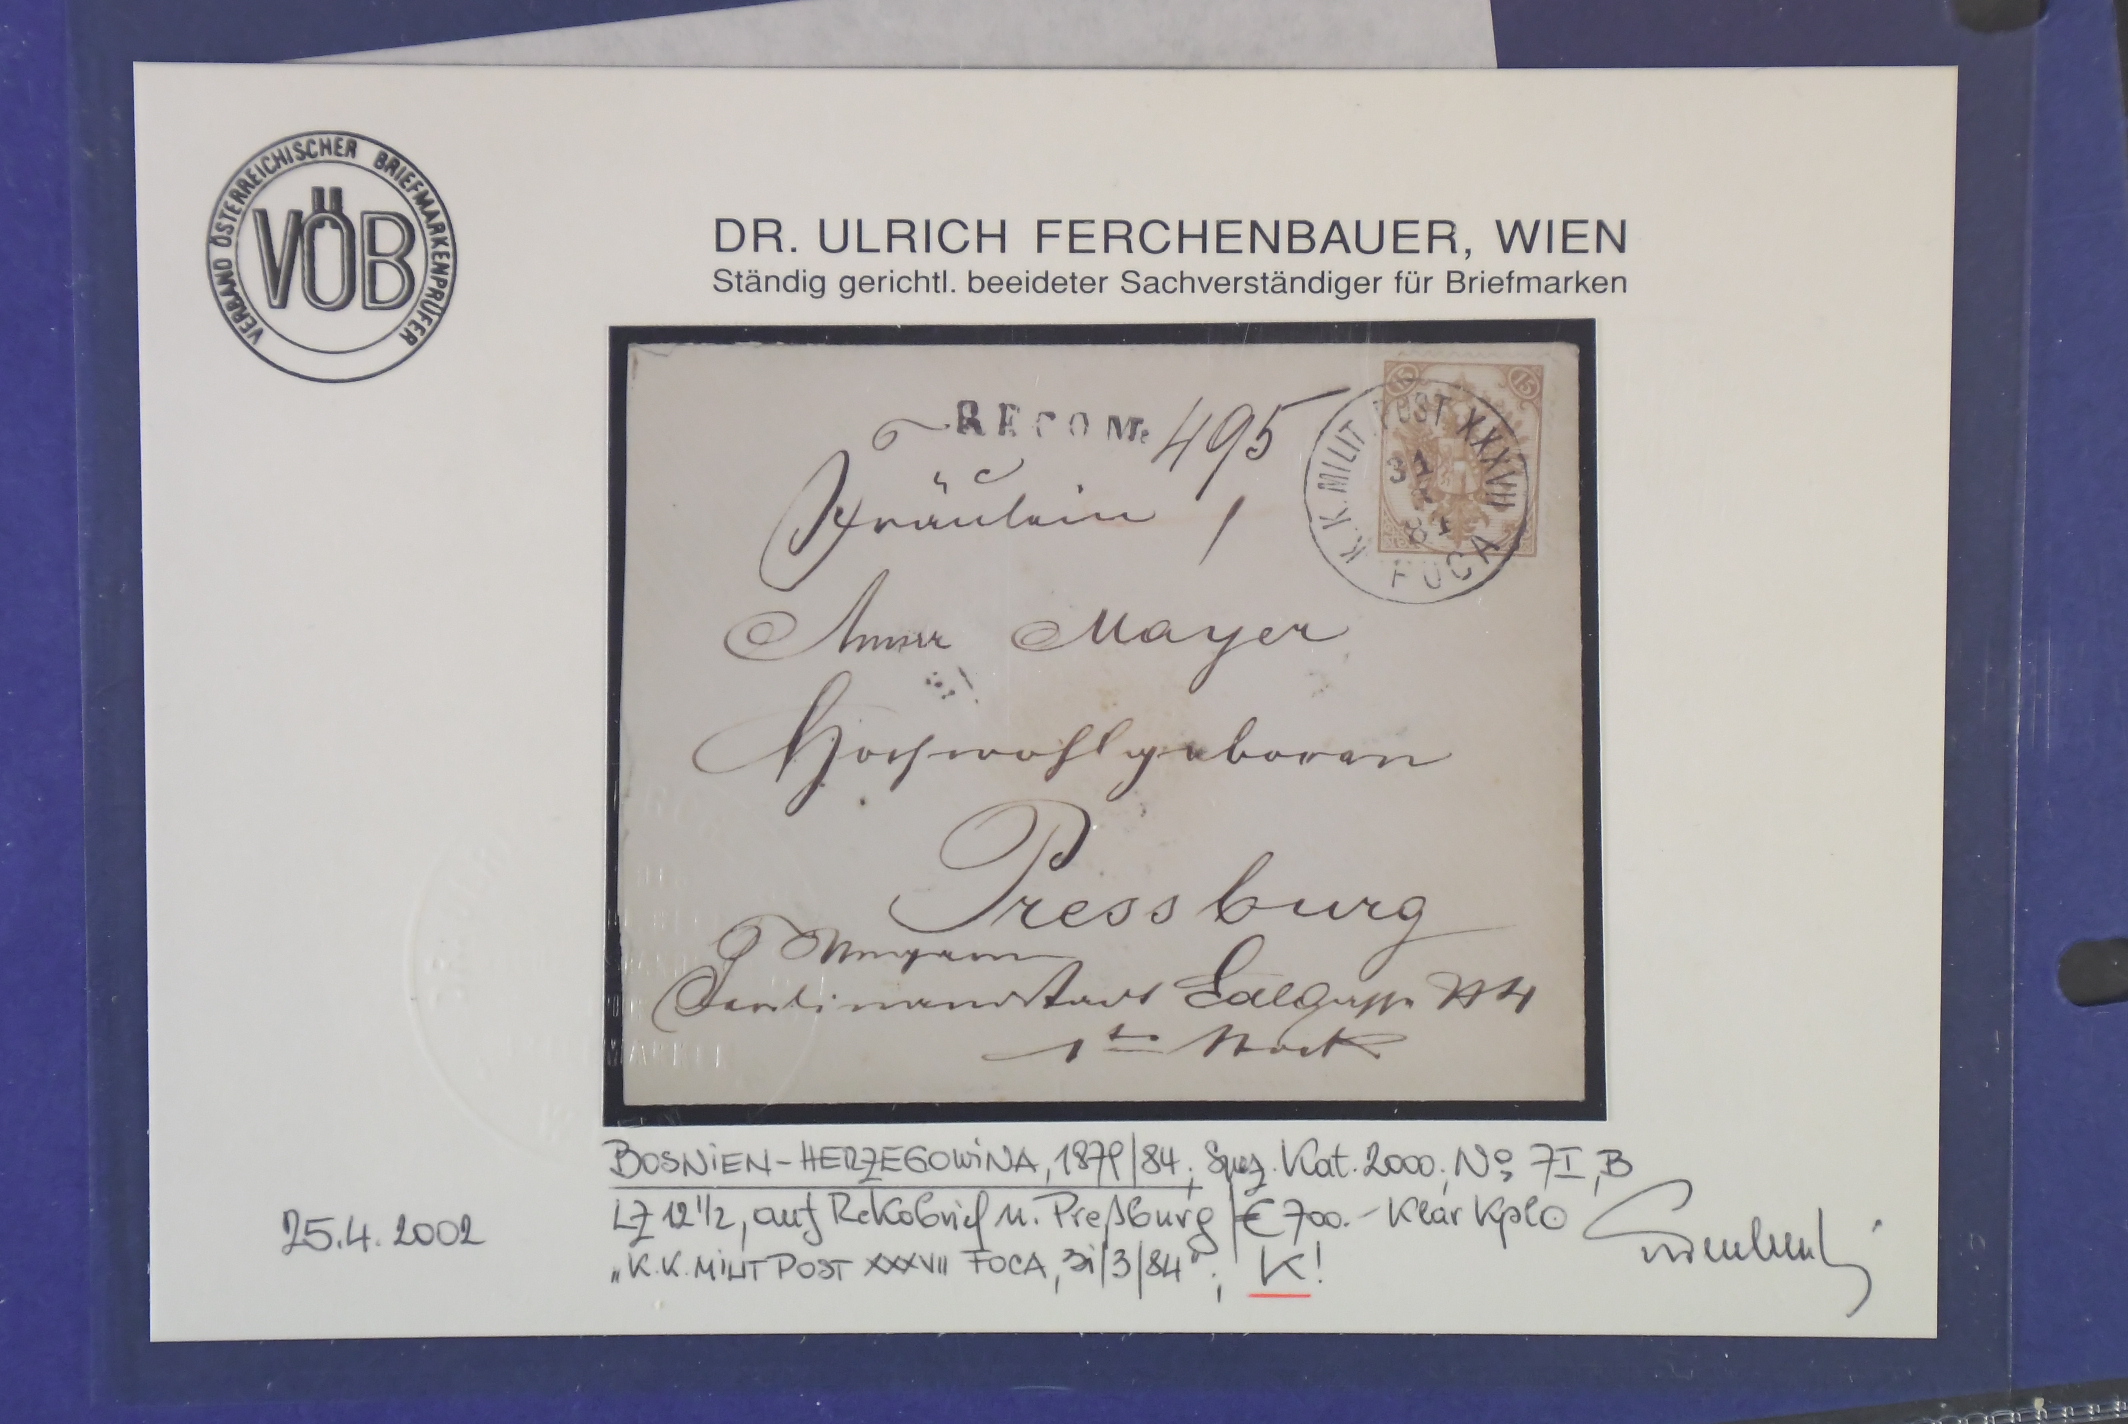 VERBAND ÖSTERREICHISCHER BRIEFMARKENPRÜFER
VÖB
DR. ULRICH FERCHENBAUER, WIEN
Ständig gerichtl. beeideter Sachverständiger für Briefmarken
RECOM: 495
15 15
K.K. MILIT POST XXXVII
31
84
FOCA
Fräulein
Anna Mayer
Hochwohlgeboren
Pressburg
Ungarn
Ferdinandstadt No 4
1ter Stock
BOSNIEN-HERZEGOWINA, 1879/84; Spez. Kat. 2000, No 7I, B
LZ 12 1/2, auf RekoBrief n. Preßburg / € 700.- Klar Kplo
„K.K. MILIT POST XXXVII FOCA, 31/3/84"; K!
25.4.2002